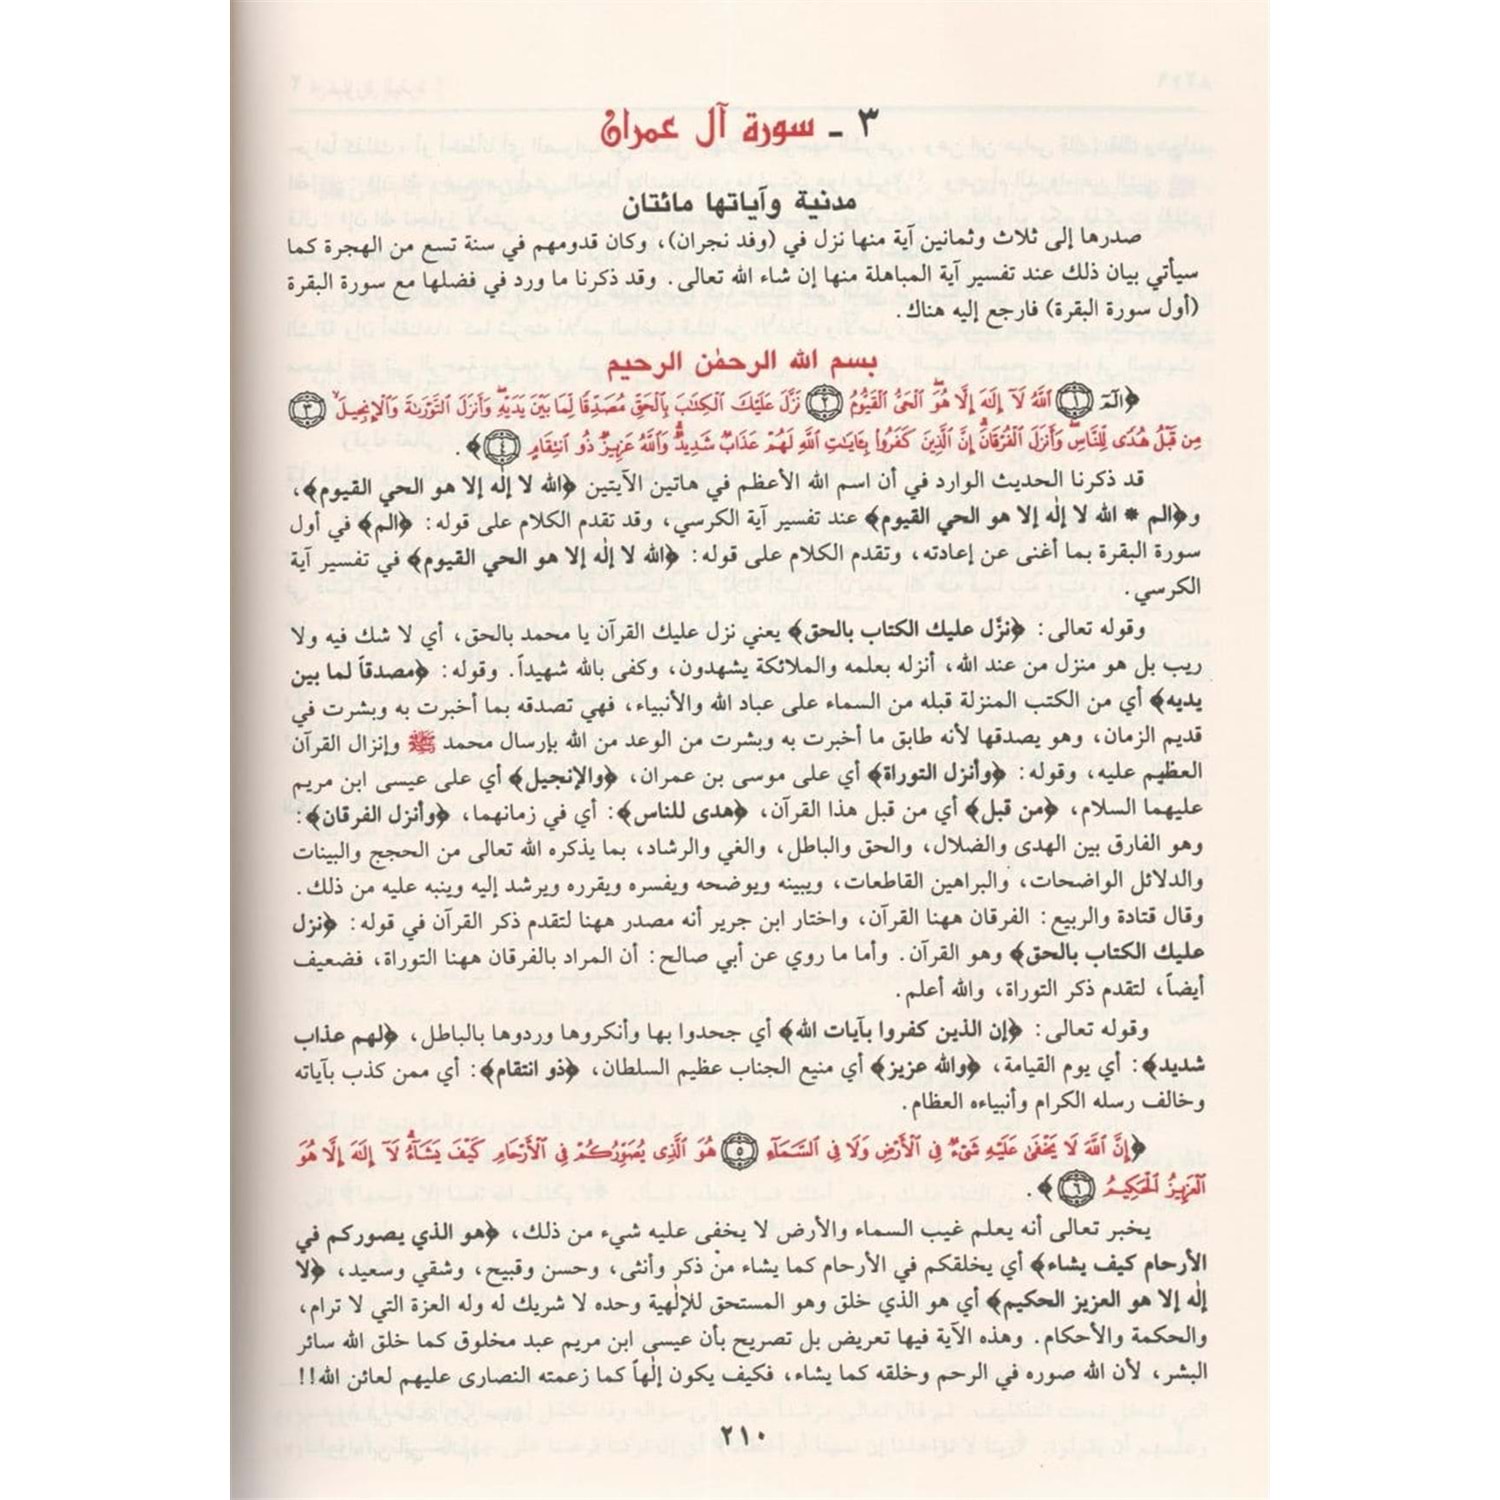 ٣ ـ سورة آل عمران
مدنية وآياتها مائتان
صدرها إلى ثلاث وثمانين آية منها نزل في (وفد نجران)، وكان قدومهم في سنة تسع من الهجرة كما
سيأتي بيان ذلك عند تفسير آية المباهلة منها إن شاء الله تعالى. وقد ذكرنا ما ورد في فضلها مع سورة البقرة
(أول سورة البقرة) فارجع إليه هناك.
بسم الله الرحمٰن الرحيم
﴿الٓمٓ ١ ٱللَّهُ لَآ إِلَٰهَ إِلَّا هُوَ ٱلْحَيُّ ٱلْقَيُّومُ ٢ نَزَّلَ عَلَيْكَ ٱلْكِتَٰبَ بِٱلْحَقِّ مُصَدِّقًا لِّمَا بَيْنَ يَدَيْهِ وَأَنزَلَ ٱلتَّوْرَىٰةَ وَٱلْإِنجِيلَ ٣
مِن قَبْلُ هُدًى لِّلنَّاسِ وَأَنزَلَ ٱلْفُرْقَانَ إِنَّ ٱلَّذِينَ كَفَرُوا۟ بِـَٔايَٰتِ ٱللَّهِ لَهُمْ عَذَابٌ شَدِيدٌ وَٱللَّهُ عَزِيزٌ ذُو ٱنتِقَامٍ ٤﴾.
قد ذكرنا الحديث الوارد في أن اسم الله الأعظم في هاتين الآيتين ﴿الله لا إلٰه إلا هو الحي القيوم﴾،
و﴿الم * الله لا إلٰه إلا هو الحي القيوم﴾ عند تفسير آية الكرسي، وقد تقدم الكلام على قوله: ﴿الم﴾ في أول
سورة البقرة بما أغنى عن إعادته، وتقدم الكلام على قوله: ﴿الله لا إلٰه إلا هو الحي القيوم﴾ في تفسير آية
الكرسي.
وقوله تعالى: ﴿نزّل عليك الكتاب بالحق﴾ يعني نزل عليك القرآن يا محمد بالحق، أي لا شك فيه ولا
ريب بل هو منزل من عند الله، أنزله بعلمه والملائكة يشهدون، وكفى بالله شهيداً. وقوله: ﴿مصدقاً لما بين
يديه﴾ أي من الكتب المنزلة قبله من السماء على عباد الله والأنبياء، فهي تصدقه بما أخبرت به وبشرت في
قديم الزمان، وهو يصدقها لأنه طابق ما أخبرت به وبشرت من الوعد من الله بإرسال محمد ﷺ وإنزال القرآن
العظيم عليه، وقوله: ﴿وأنزل التوراة﴾ أي على موسى بن عمران، ﴿والإنجيل﴾ أي على عيسى ابن مريم
عليهما السلام، ﴿من قبل﴾ أي من قبل هذا القرآن، ﴿هدى للناس﴾: أي في زمانهما، ﴿وأنزل الفرقان﴾:
وهو الفارق بين الهدى والضلال، والحق والباطل، والغي والرشاد، بما يذكره الله تعالى من الحجج والبينات
والدلائل الواضحات، والبراهين القاطعات، ويبينه ويوضحه ويفسره ويقرره ويرشد إليه وينبه عليه من ذلك.
وقال قتادة والربيع: الفرقان ههنا القرآن، واختار ابن جرير أنه مصدر ههنا لتقدم ذكر القرآن في قوله: ﴿نزل
عليك الكتاب بالحق﴾ وهو القرآن. وأما ما روي عن أبي صالح: أن المراد بالفرقان ههنا التوراة، فضعيف
أيضاً، لتقدم ذكر التوراة، والله أعلم.
وقوله تعالى: ﴿إن الذين كفروا بآيات الله﴾ أي جحدوا بها وأنكروها وردوها بالباطل، ﴿لهم عذاب
شديد﴾: أي يوم القيامة، ﴿والله عزيز﴾ أي منيع الجناب عظيم السلطان، ﴿ذو انتقام﴾: أي ممن كذب بآياته
وخالف رسله الكرام وأنبياءه العظام.
﴿إِنَّ ٱللَّهَ لَا يَخْفَىٰ عَلَيْهِ شَىْءٌ فِى ٱلْأَرْضِ وَلَا فِى ٱلسَّمَآءِ ٥ هُوَ ٱلَّذِى يُصَوِّرُكُمْ فِى ٱلْأَرْحَامِ كَيْفَ يَشَآءُ لَآ إِلَٰهَ إِلَّا هُوَ
ٱلْعَزِيزُ ٱلْحَكِيمُ ٦﴾.
يخبر تعالى أنه يعلم غيب السماء والأرض لا يخفى عليه شيء من ذلك، ﴿هو الذي يصوركم في
الأرحام كيف يشاء﴾ أي يخلقكم في الأرحام كما يشاء منْ ذكر وأنثى، وحسن وقبيح، وشقي وسعيد، ﴿لا
إلٰه إلا هو العزيز الحكيم﴾ أي هو الذي خلق وهو المستحق للإلٰهية وحده لا شريك له وله العزة التي لا ترام،
والحكمة والأحكام. وهذه الآية فيها تعريض بل تصريح بأن عيسى ابن مريم عبد مخلوق كما خلق الله سائر
البشر، لأن الله صوره في الرحم وخلقه كما يشاء، فكيف يكون إلٰهاً كما زعمته النصارى عليهم لعائن الله!!
٢١٠